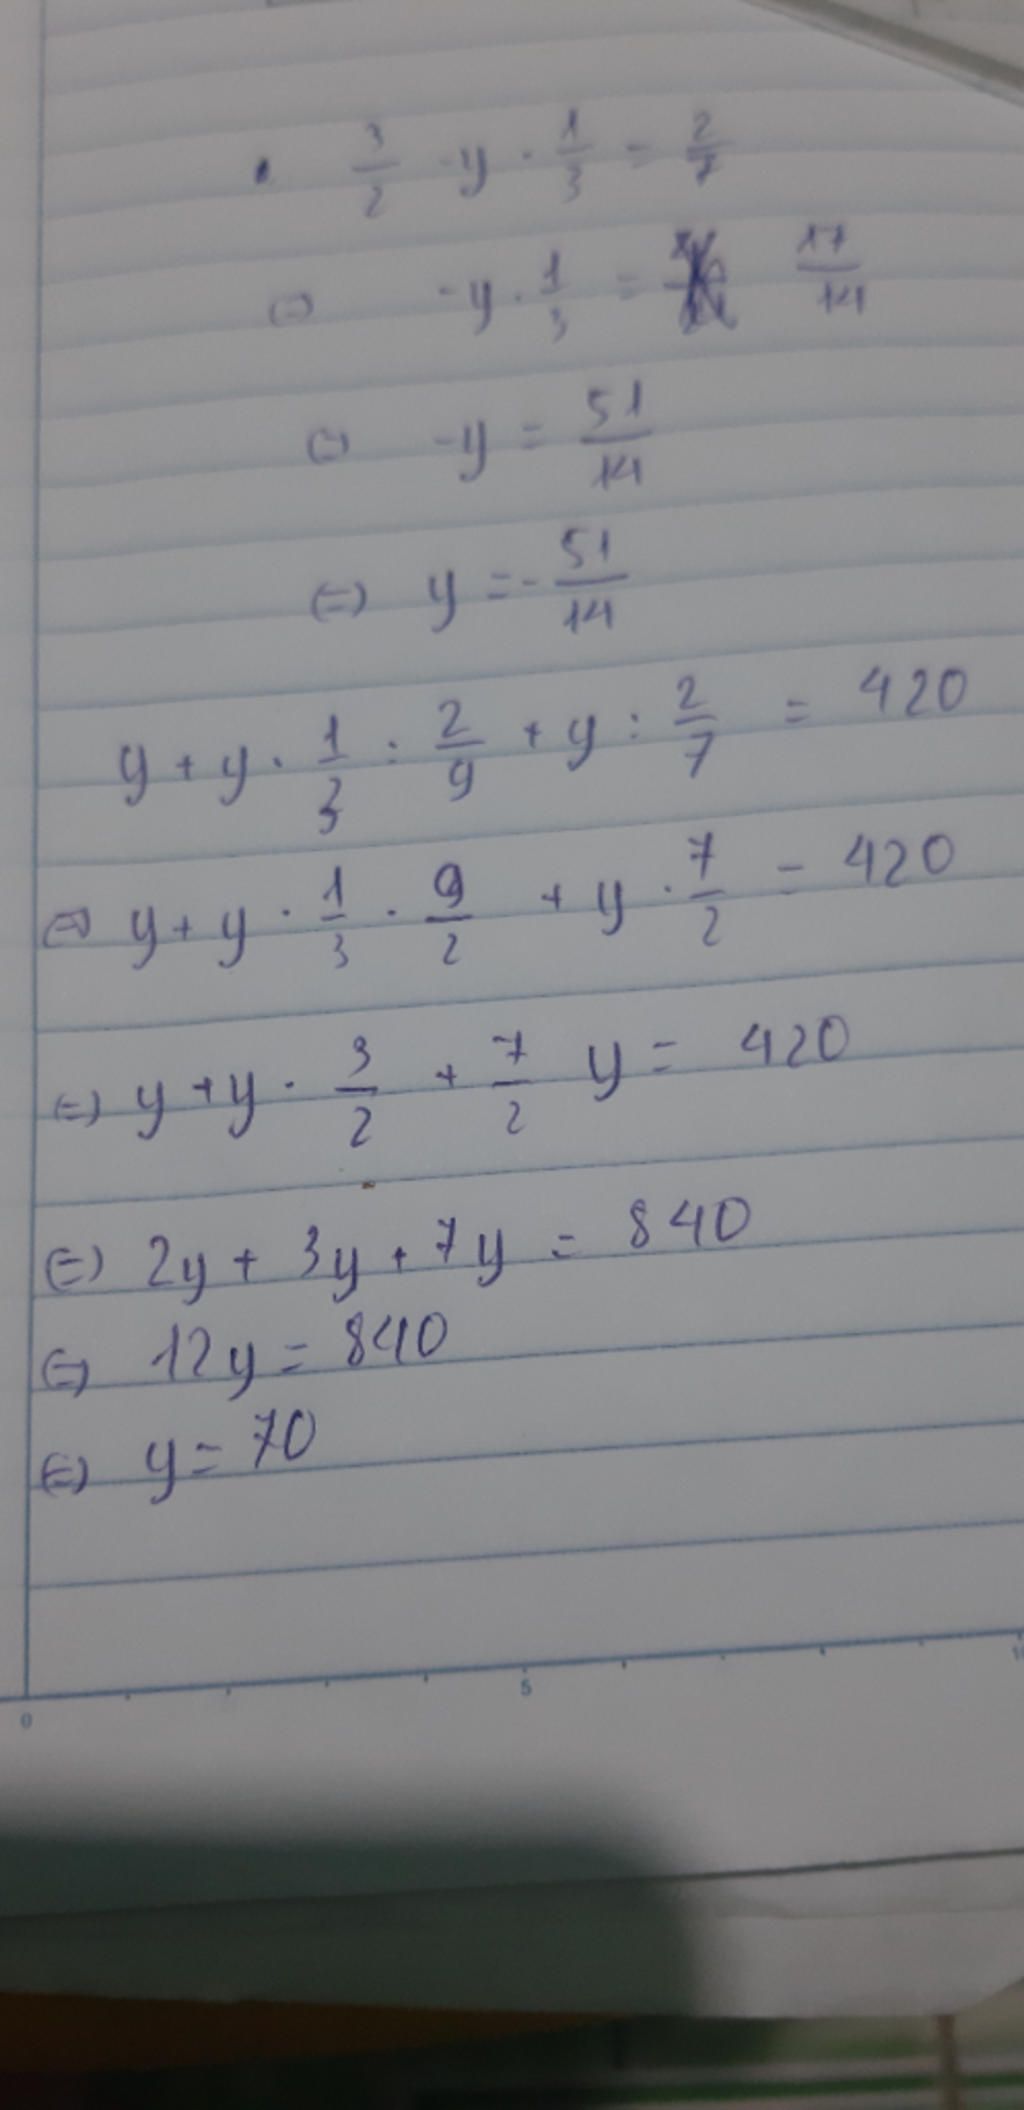 3/2 - y . 1/3 = 2/7
(=) -y . 1/3 = 17/14
(=) -y = 51/14
(=) y = - 51/14
y + y . 1/3 : 2/9 + y : 2/7 = 420
(=) y + y . 1/3 . 9/2 + y . 7/2 = 420
(=) y + y . 3/2 + 7/2 y = 420
(=) 2y + 3y + 7y = 840
(=) 12y = 840
(=) y = 70
0 5 10